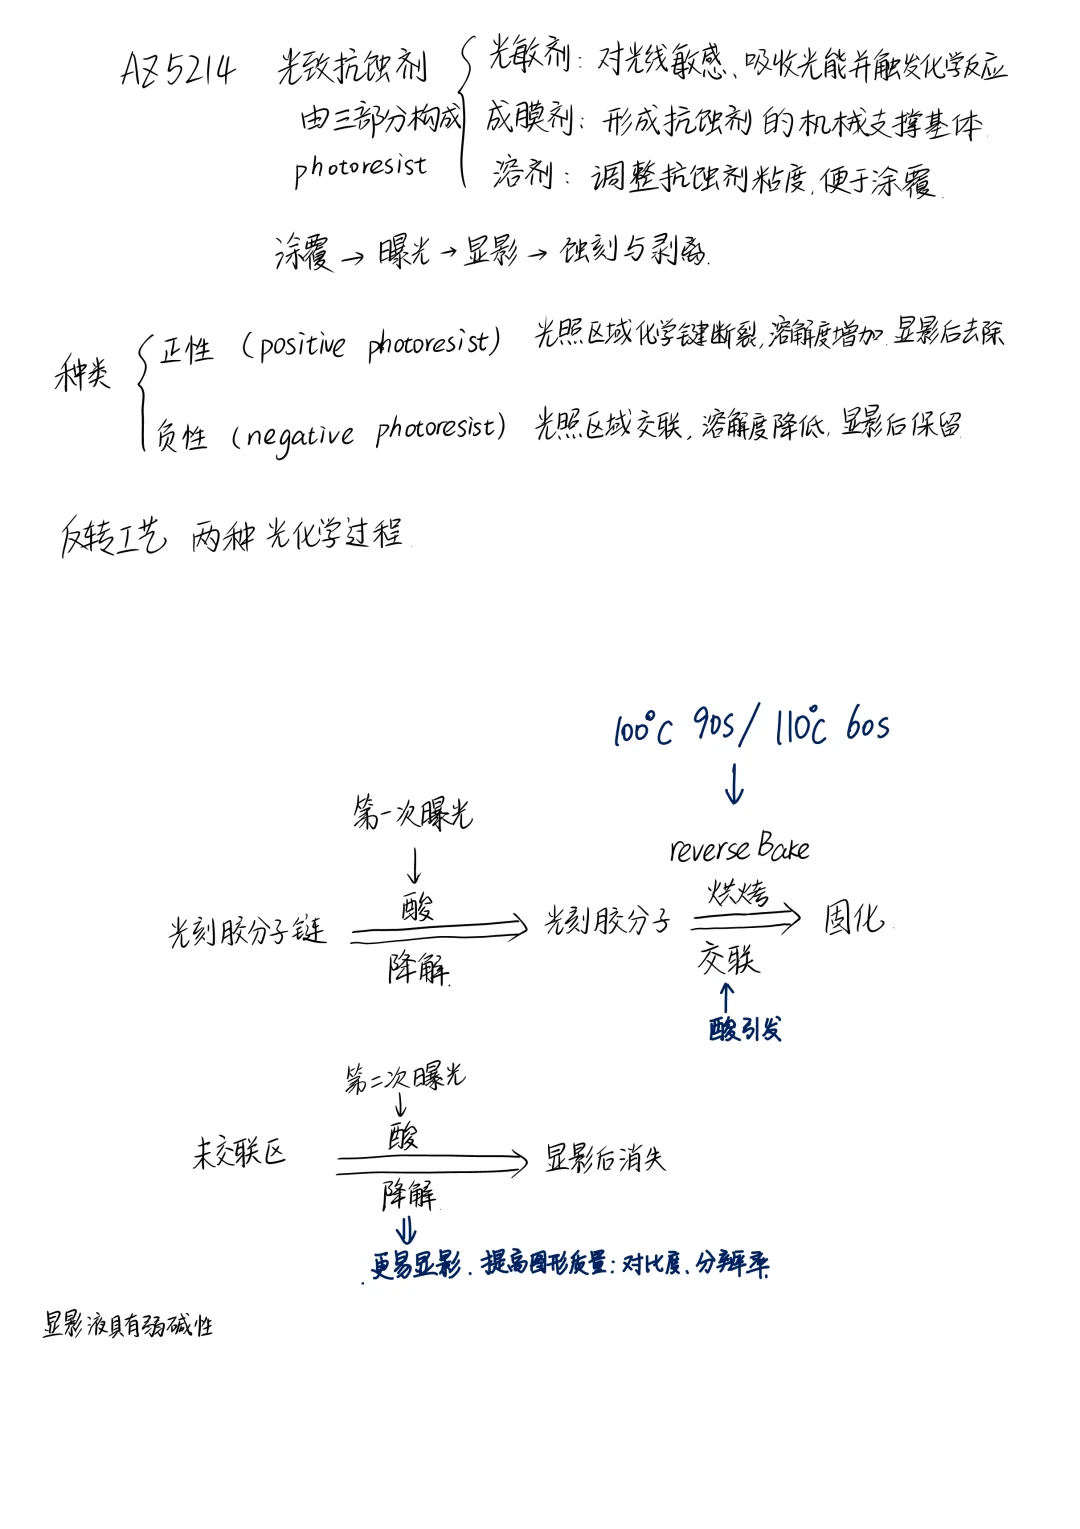 AZ5214 光致抗蚀剂 光敏剂: 对光线敏感、吸收光能并触发化学反应
由三部分构成 成膜剂: 形成抗蚀剂的机械支撑基体
photoresist 溶剂: 调整抗蚀剂粘度,便于涂覆.
涂覆→曝光→显影→蚀刻与剥离.
种类
正性 (positive photoresist) 光照区域化学键断裂,溶解度增加.显影后去除
负性 (negative photoresist) 光照区域交联,溶解度降低,显影后保留
反转工艺 两种光化学过程.
100℃ 90s/ 110℃ 60s
↓
第一次曝光
↓
reverse Bake
光刻胶分子链 酸 降解. ⇒ 光刻胶分子 烘烤 交联 ⇒ 固化.
↑
酸引发
第二次曝光
↓
未交联区 酸 降解. ⇒ 显影后消失
⇓
.更易显影.提高图形质量:对比度、分辨率.
显影液具有弱碱性